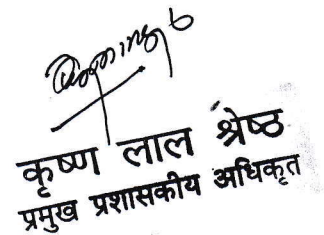 कृष्ण लाल श्रेष्ठ
प्रमुख प्रशासकीय अधिकृत